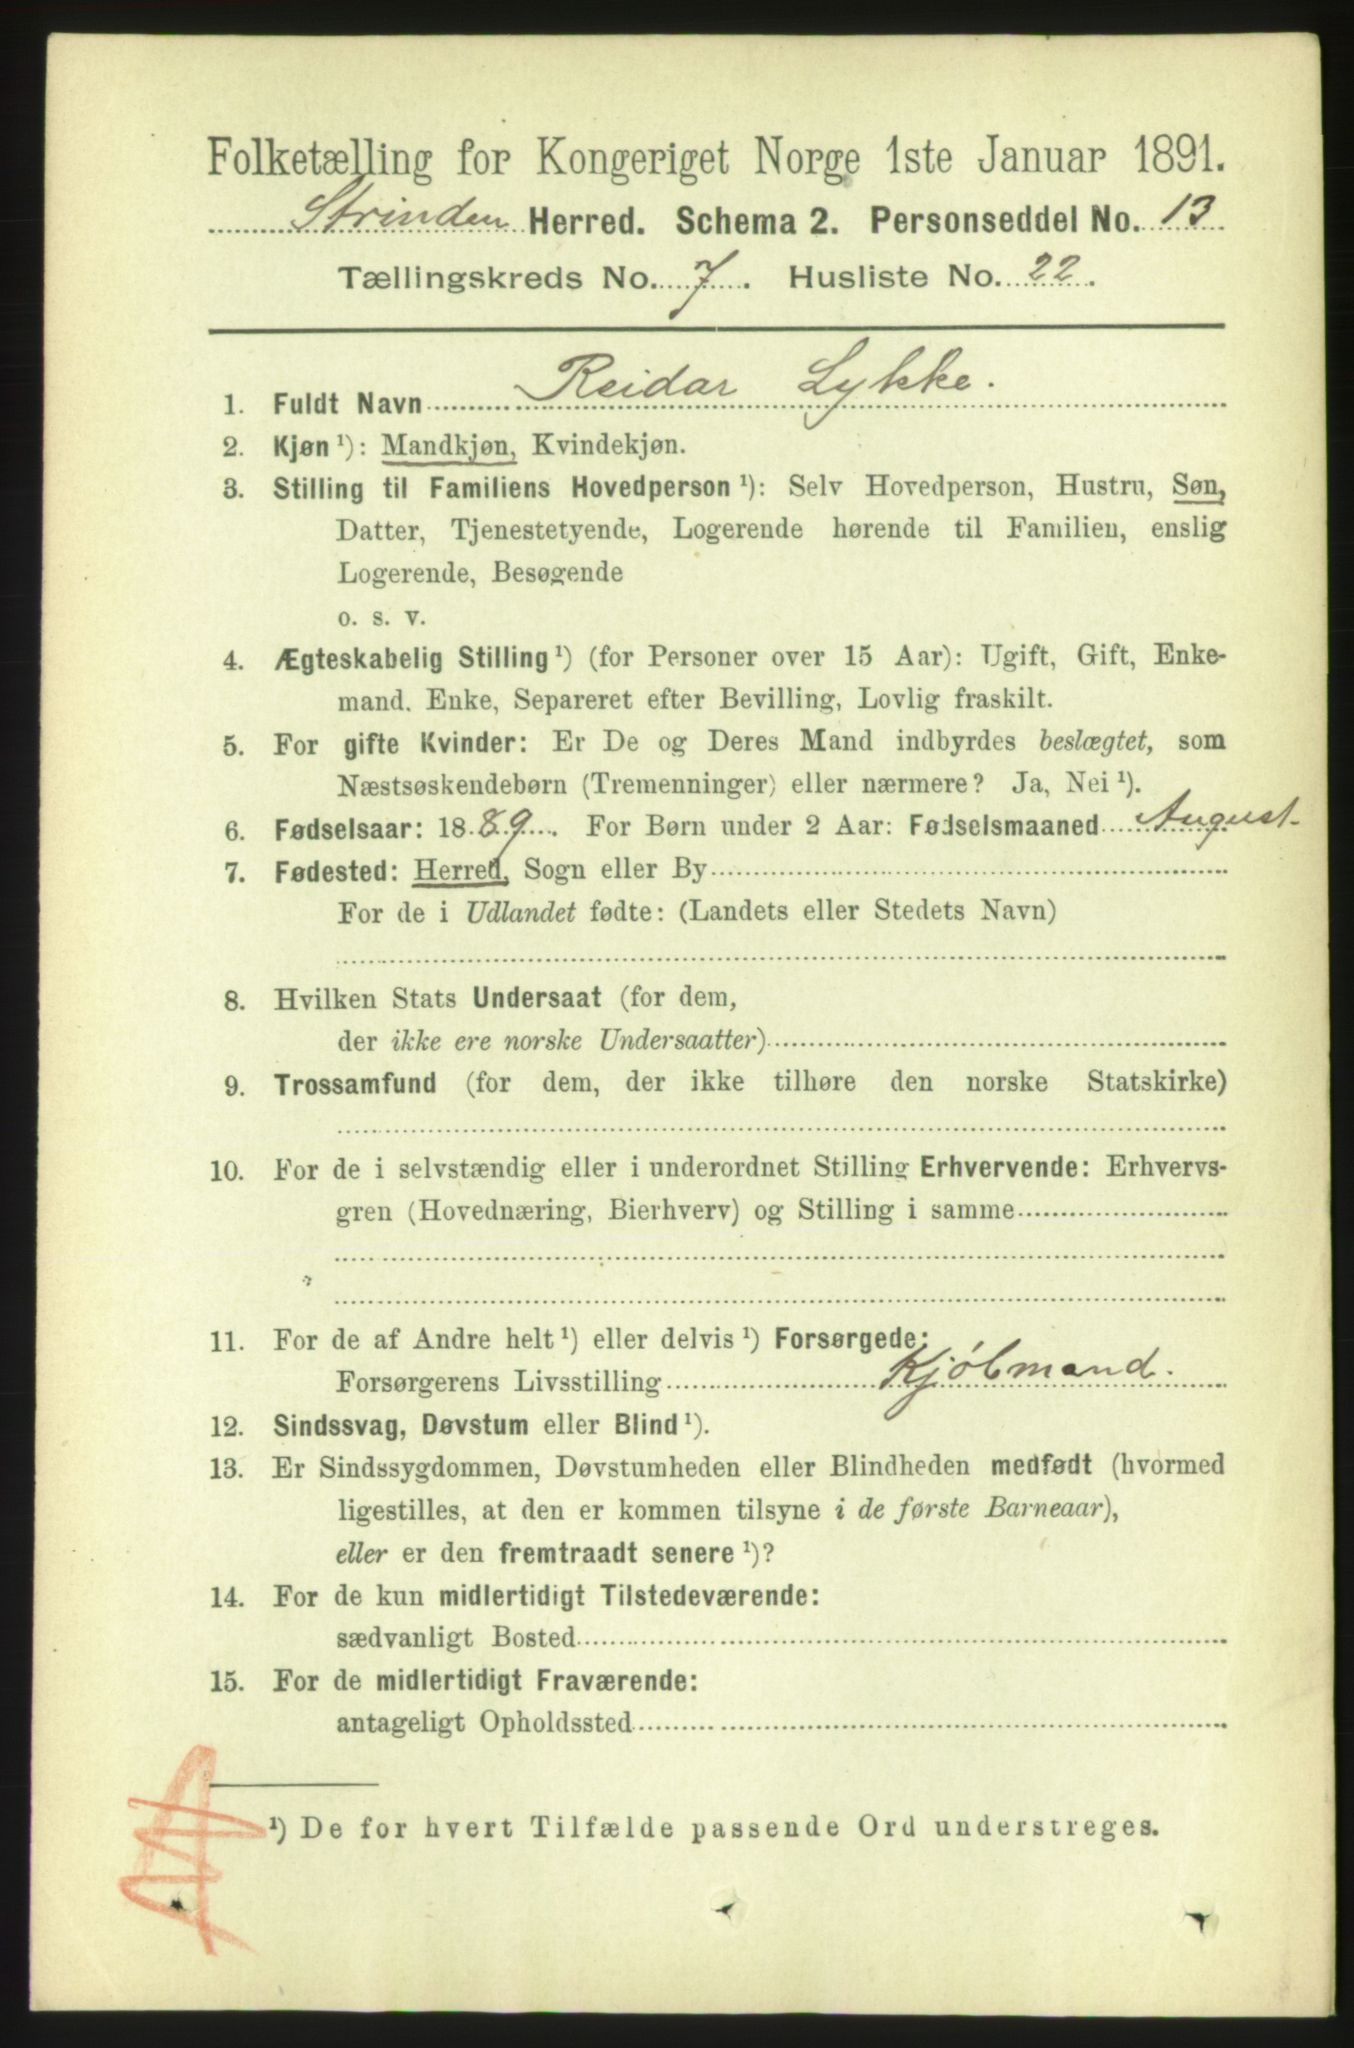 Folketælling for Kongeriget Norge 1ste Januar 1891.
Strinden Herred. Schema 2. Personseddel No. 13
Tællingskreds No. 7. Husliste No. 22.
1. Fuldt Navn Reidar Lykke.
2. Kjøn ¹): Mandkjøn, Kvindekjøn.
3. Stilling til Familiens Hovedperson ¹): Selv Hovedperson, Hustru, Søn,
Datter, Tjenestetyende, Logerende hørende til Familien, enslig
Logerende, Besøgende
o. s. v.
4. Ægteskabelig Stilling ¹) (for Personer over 15 Aar): Ugift, Gift, Enke-
mand. Enke, Separeret efter Bevilling, Lovlig fraskilt.
5. For gifte Kvinder: Er De og Deres Mand indbyrdes beslægtet, som
Næstsøskendebørn (Tremenninger) eller nærmere? Ja, Nei ¹).
6. Fødselsaar: 1889. For Børn under 2 Aar: Fødselsmaaned August
7. Fødested: Herred, Sogn eller By
For de i Udlandet fødte: (Landets eller Stedets Navn)
8. Hvilken Stats Undersaat (for dem,
der ikke ere norske Undersaatter)
9. Trossamfund (for dem, der ikke tilhøre den norske Statskirke)
10. For de i selvstændig eller i underordnet Stilling Erhvervende: Erhvervs-
gren (Hovednæring, Bierhverv) og Stilling i samme
11. For de af Andre helt ¹) eller delvis ¹) Forsørgede:
Forsørgerens Livsstilling Kjøbmand.
12. Sindssvag, Døvstum eller Blind ¹).
13. Er Sindssygdommen, Døvstumheden eller Blindheden medfødt (hvormed
ligestilles, at den er kommen tilsyne i de første Barneaar),
eller er den fremtraadt senere ¹)?
14. For de kun midlertidigt Tilstedeværende:
sædvanligt Bosted
15. For de midlertidigt Fraværende:
antageligt Opholdssted
¹) De for hvert Tilfælde passende Ord understreges.